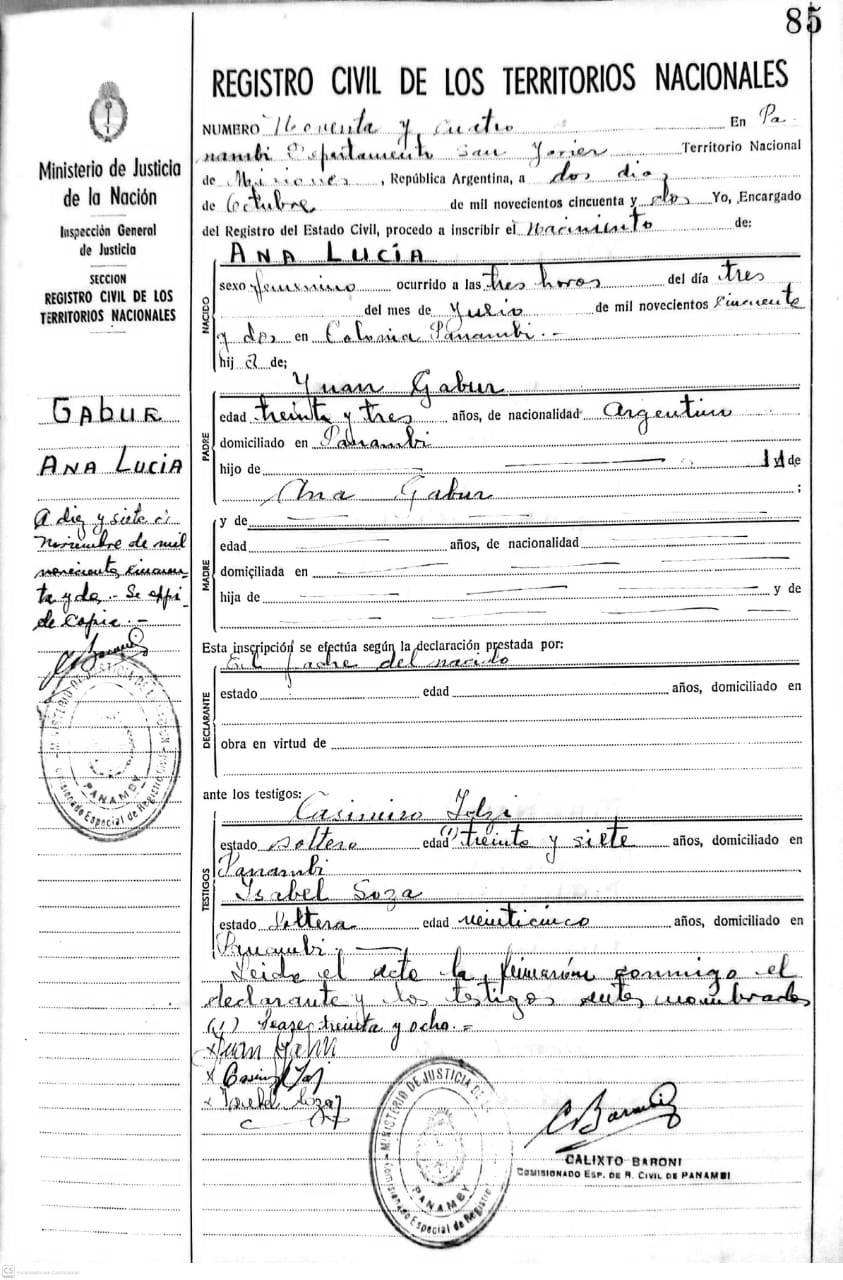 85
REGISTRO CIVIL DE LOS TERRITORIOS NACIONALES
Ministerio de Justicia
de la Nación
Inspección General
de Justicia
SECCION
REGISTRO CIVIL DE LOS
TERRITORIOS NACIONALES
GABUR
ANA LUCIA
A diez y siete
Noviembre de mil
novecientos cincuen-
ta y dos.- Se expi-
de copia.-
MINISTERIO DE JUSTICIA DE LA NACION
PANAMBY
Comisionado Especial de Registro
NUMERO Noventa y cuatro En Pa-
nambi Departamento San Javier Territorio Nacional
de Misiones, República Argentina, a dos dias
de Octubre de mil novecientos cincuenta y dos Yo, Encargado
del Registro del Estado Civil, procedo a inscribir el Nacimiento de:
ANA LUCÍA
NACIDO
sexo femenino ocurrido a las tres horas del día tres
del mes de Julio de mil novecientos cincuenta
y dos en Colonia Panambi.-
hij a de;
Juan Gabur
PADRE
edad treinta y tres años, de nacionalidad Argentin
domiciliado en Panambi
hijo de de
Ana Gabur ;
MADRE
y de
edad años, de nacionalidad
domiciliada en
hija de y de
Esta inscripción se efectúa según la declaración prestada por:
El padre del nacido
DECLARANTE
estado edad años, domiciliado en
obra en virtud de
ante los testigos:
Casimiro
TESTIGOS
estado soltero edad (1) treinta y siete años, domiciliado en
Panambi
Isabel Soza
estado Soltera edad veinticinco años, domiciliado en
Panambi
Leida el acta la firmarón conmigo el
declarante y los testigos antes nombrados
(1) Lease: treinta y ocho.=
x Juan
x
x Isabel Soza
MINISTERIO DE JUSTICIA DE LA
PANAMBY
Comisionado Especial de Registro
C Baroni
CALIXTO BARONI
COMISIONADO ESP. DE R. CIVIL DE PANAMBI
CS